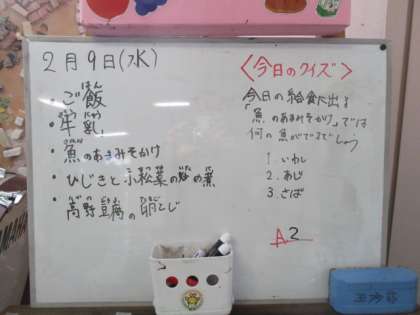 2月9日(水)
・ご飯
はん
・牛乳
にゅう
・魚のあまみそかけ
・ひじきと小松菜の炒め煮
・高野豆腐の卵とじ
〈今日のクイズ〉
今日の給食に出る
「魚のあまみそかけ」では
何の魚がでるでしょう
1. いわし
2. あじ
3. さば
A2